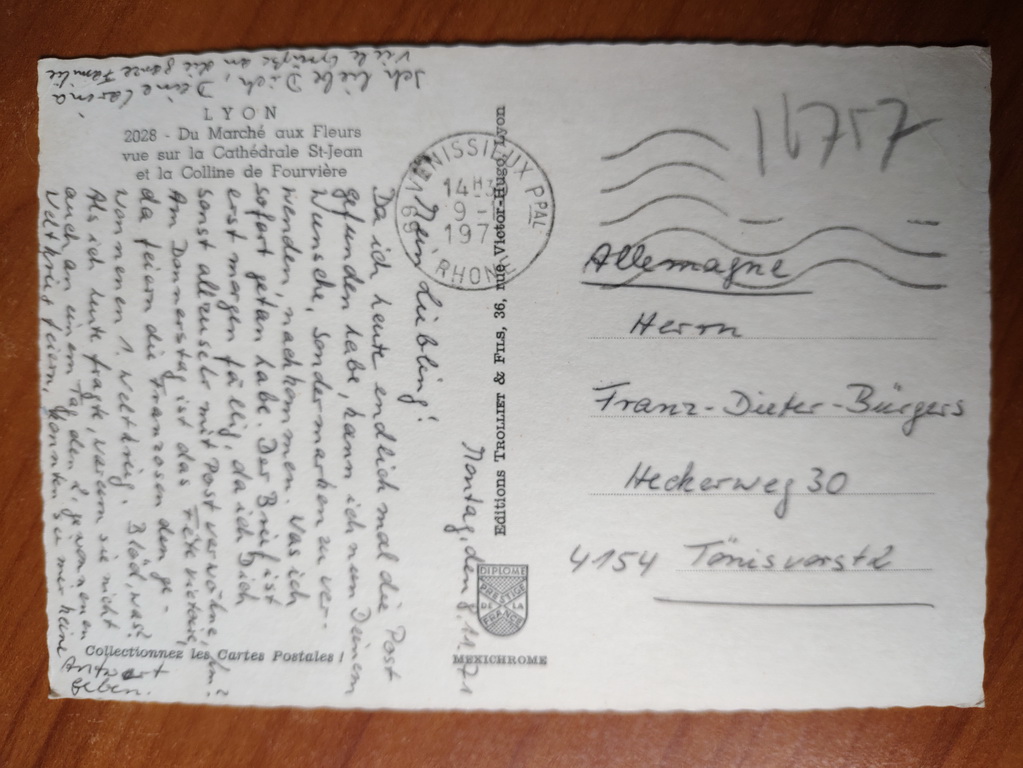 LYON
2028 - Du Marché aux Fleurs
vue sur la Cathédrale St-Jean
et la Colline de Fourvière
Montag, den 8.11.71
Mein Liebling!
Da ich heute endlich mal die Post
gefunden habe, kann ich nun Deinem
Wunsche, Sondermarken zu ver-
wenden, nachkommen. Was ich
sofort getan habe. Der Brief ist
erst morgen fällig, da ich Dich
sonst allzusehr mit Post verwöhne, hm?
Am Donnerstag ist das Fête victoire,
da feiern die Franzosen den ge-
wonnenen 1. Weltkrieg. Blöd, was?
Als ich heute fragte, warum sie nicht
auch an einem Tag den 2. gewonnenen
Weltkrieg feiern, konnten sie mir keine
Antwort
geben.
Ich liebe Dich, Deine
Viele Grüße an die ganze Familie
VENISSIEUX PPAL
14 H3
9 -
197
RHONE
69
Editions TROLLIET & FILS, 36, rue Victor-Hugo, Lyon
DIPLOME
PRESTIGE
DE LA
FRANCE
MEXICHROME
Collectionnez les Cartes Postales !
16757
Allemagne
Herrn
Franz-Dieter-Bürgers
Heckerweg 30
4154 Tönisvorst 2